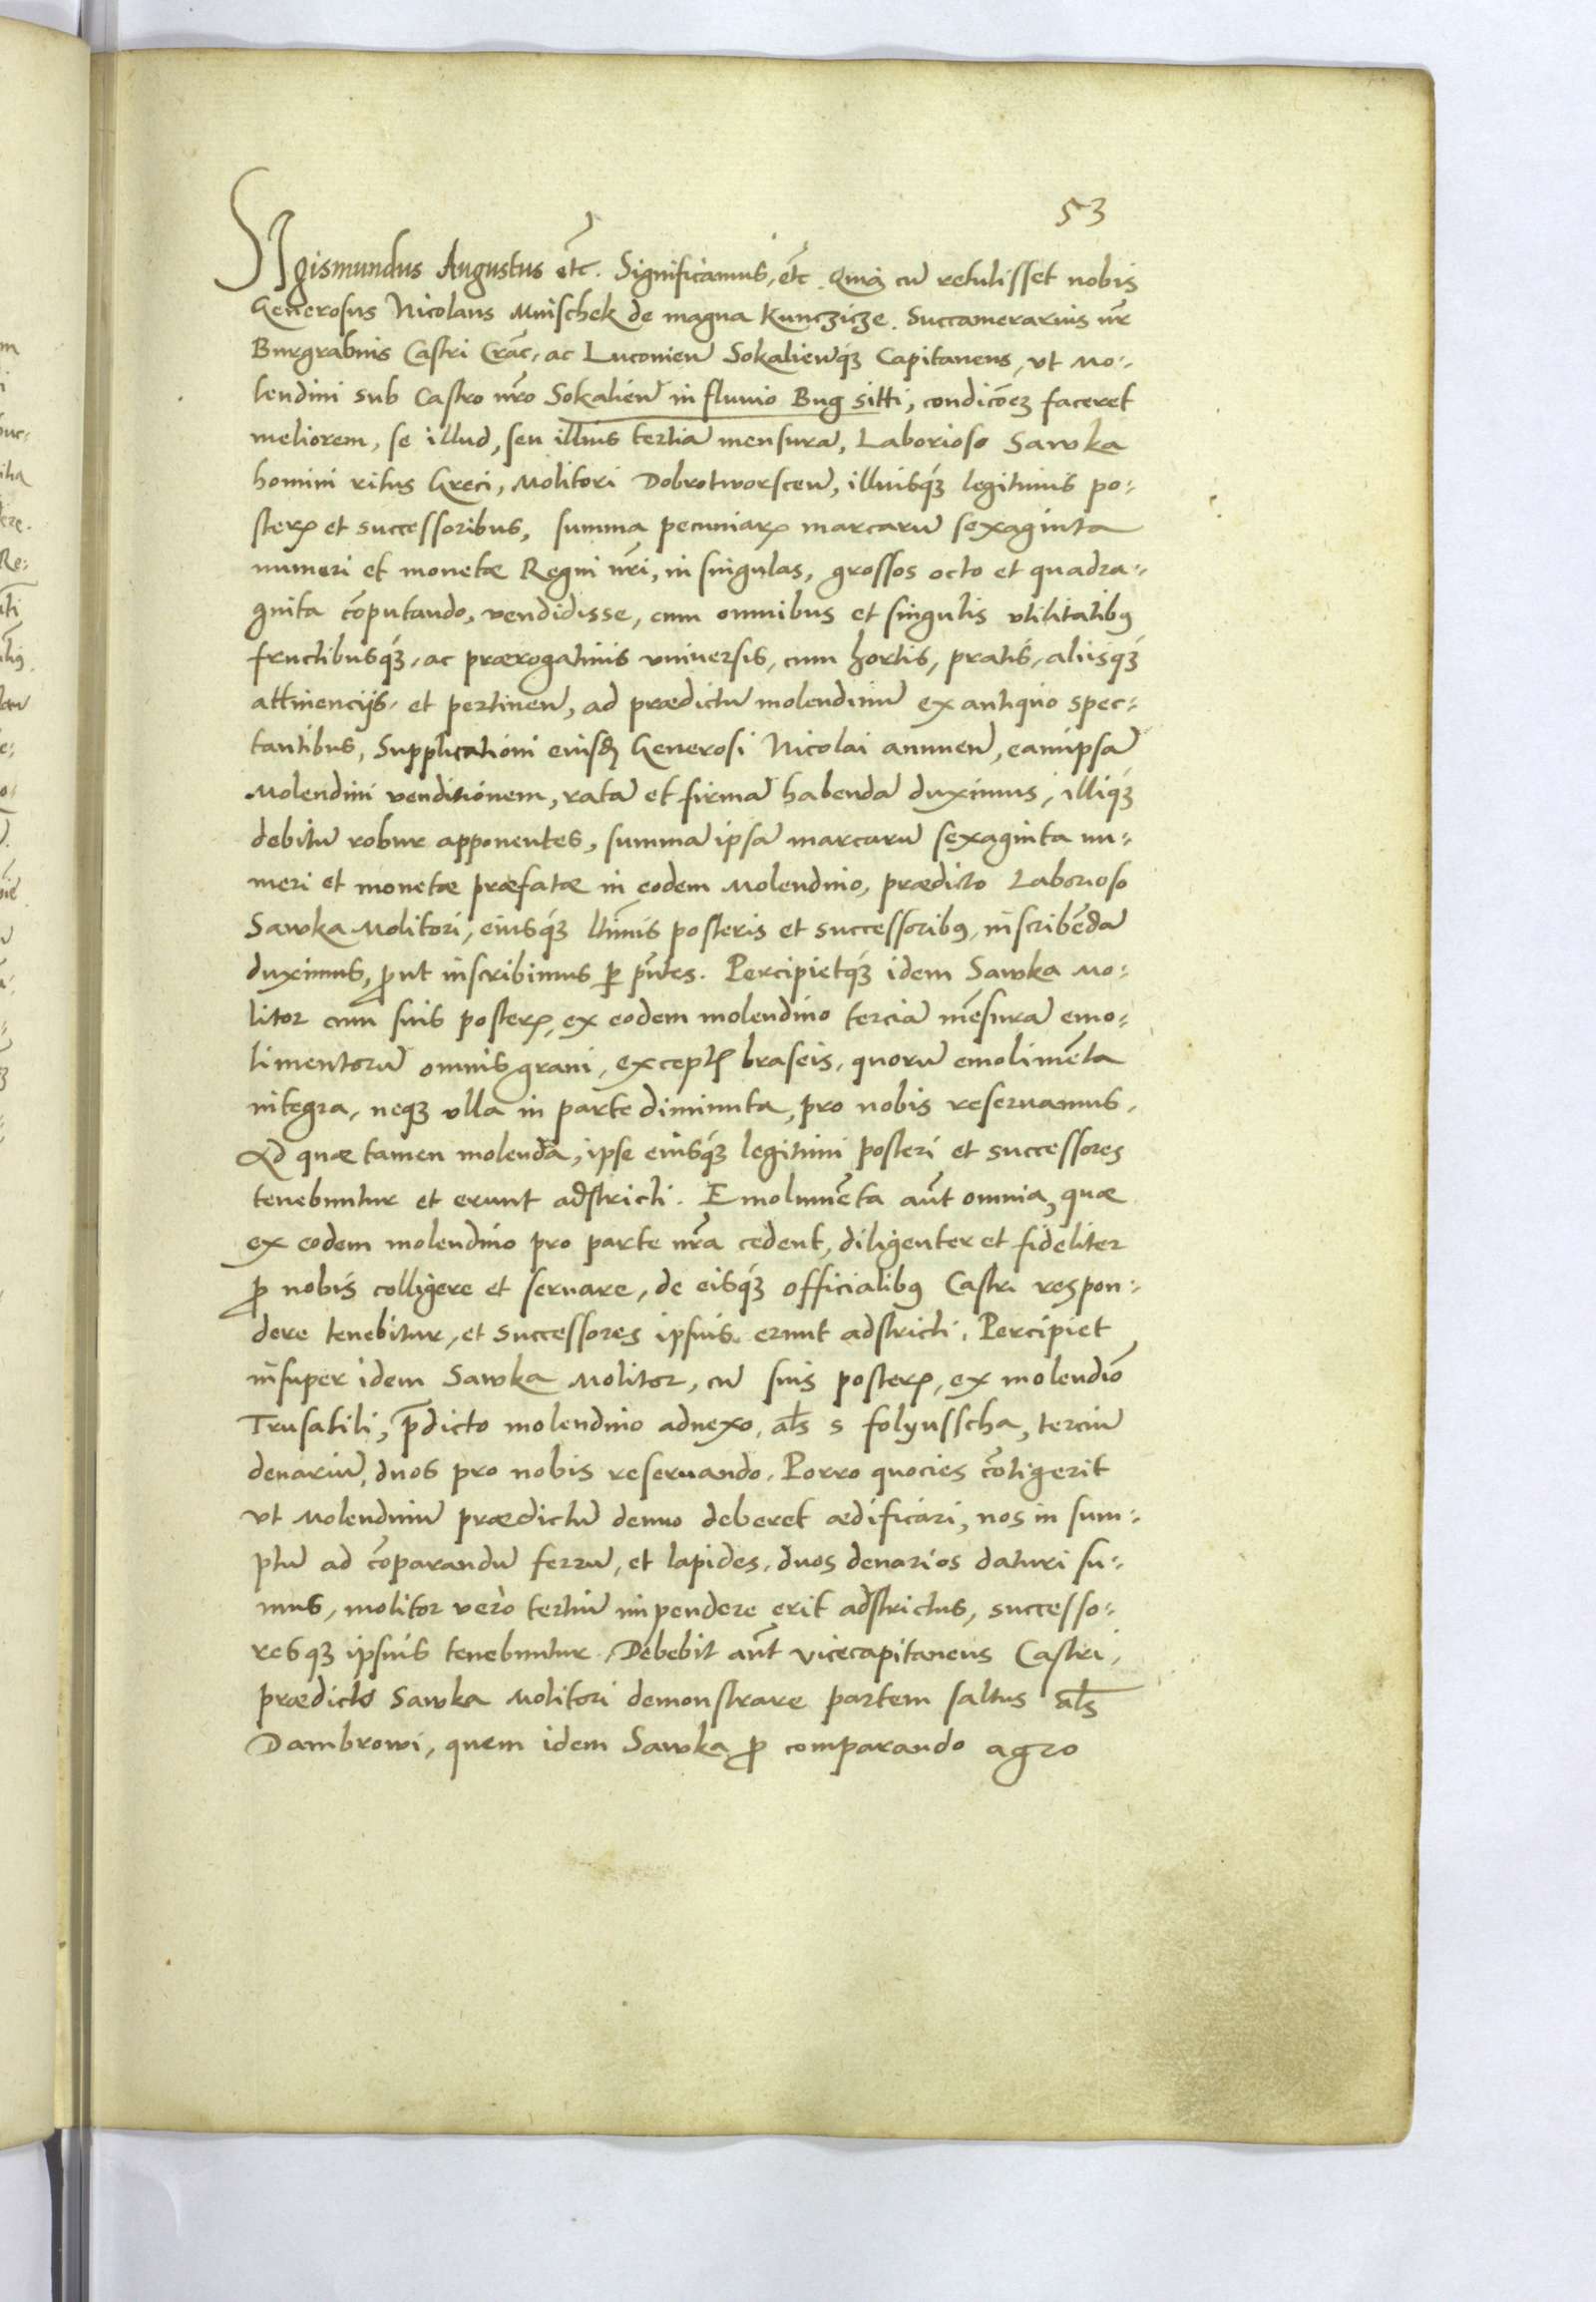 53
SIgismundus Augustus etc. Significamus, etc. Quia cū retulisset nobis
Generosus Nicolaus Mnischek de magna Kunczicze. Succamerarius nr̄
Burgrabius Castri Crac̄, ac Luconieñ Sokalieñqȝ Capitaneus, vt Mo:
lendini sub Castro nr̄o Sokalieñ in fluuio Bug sitti, condicōeȝ faceret
meliorem, se illud, seu illius tertiā mensurā, Laborioso Sawka
homini ritus Greci, Molitori Dobrotworsceñ, illiusqȝ legitimis po:
sterꝭ et successoribus, summa pecuniarꝭ marcarū sexaginta
numeri et monetæ Regni nr̄i, in singulas, grossos octo et quadra:
ginta cōputando, vendidisse, cum omnibus et singulis vtilitatibꝰ
fructibusqȝ, ac prærogatiuis vniuersis, cum hortis, pratis, aliisqȝ
attinencijs, et pertineñ, ad prædictū molendinū ex antiquo spec:
tantibus, Supplicationi eiusđ Generosi Nicolai annueñ, eamipsā
Molendini venditionem, ratā et firmā habendā duximus, illiqȝ
debitū robur apponentes, summā ipsā marcarū sexaginta nu:
meri et monetæ præfatæ in eodem Molendino, prædicto Laborioso
Sawka Molitori, eiusqȝ ltīmis posteris et successoribꝰ, inscribēdā
duximus, ꝓut inscribimus ꝑ pn̄tes. Percipietqȝ idem Sawka Mo:
litor cum suis posterꝭ, ex eodem molendino terciā mēsurā emo:
limentorū omnis grani, exceptꝭ braseis, quorū emolimēta
integra, neqȝ vlla in parte diminuta, pro nobis reseruamus.
Ad quæ tamen molendā, ipse eiusqȝ legitimi posteri et successores
tenebuntur et erunt adstricti. Emolumēta aūt omnia, quæ
ex eodem molendino pro parte nr̄a cedent, diligenter et fideliter
ꝓ nobis colligere et seruare, de eisqȝ officialibꝰ Castri respon:
dere tenebitur, et successores ipsius erunt adstricti. Percipiet
insuper idem Sawka Molitor, cū suis posterꝭ, ex molendiō
Trusatili, p̄dicto molendino adnexo, al̄s s folyusscha, terciū
denariū, duos pro nobis reseruando. Porro quocies cōtigerit
vt Molendinū prædictū denuo deberet ædificari, nos in sum:
ptū ad cōparandū ferrū, et lapides, duos denarios daturi su:
mus, molitor vero tertiū impendere erit adstrictus, successo:
resqȝ ipsius tenebuntur. Debebit aūt Vicecapitaneus Castri,
prædicto Sawka Molitori demonstrare partem saltus al̄s
Dambrowi, quem idem Sawka ꝓ comparando agro